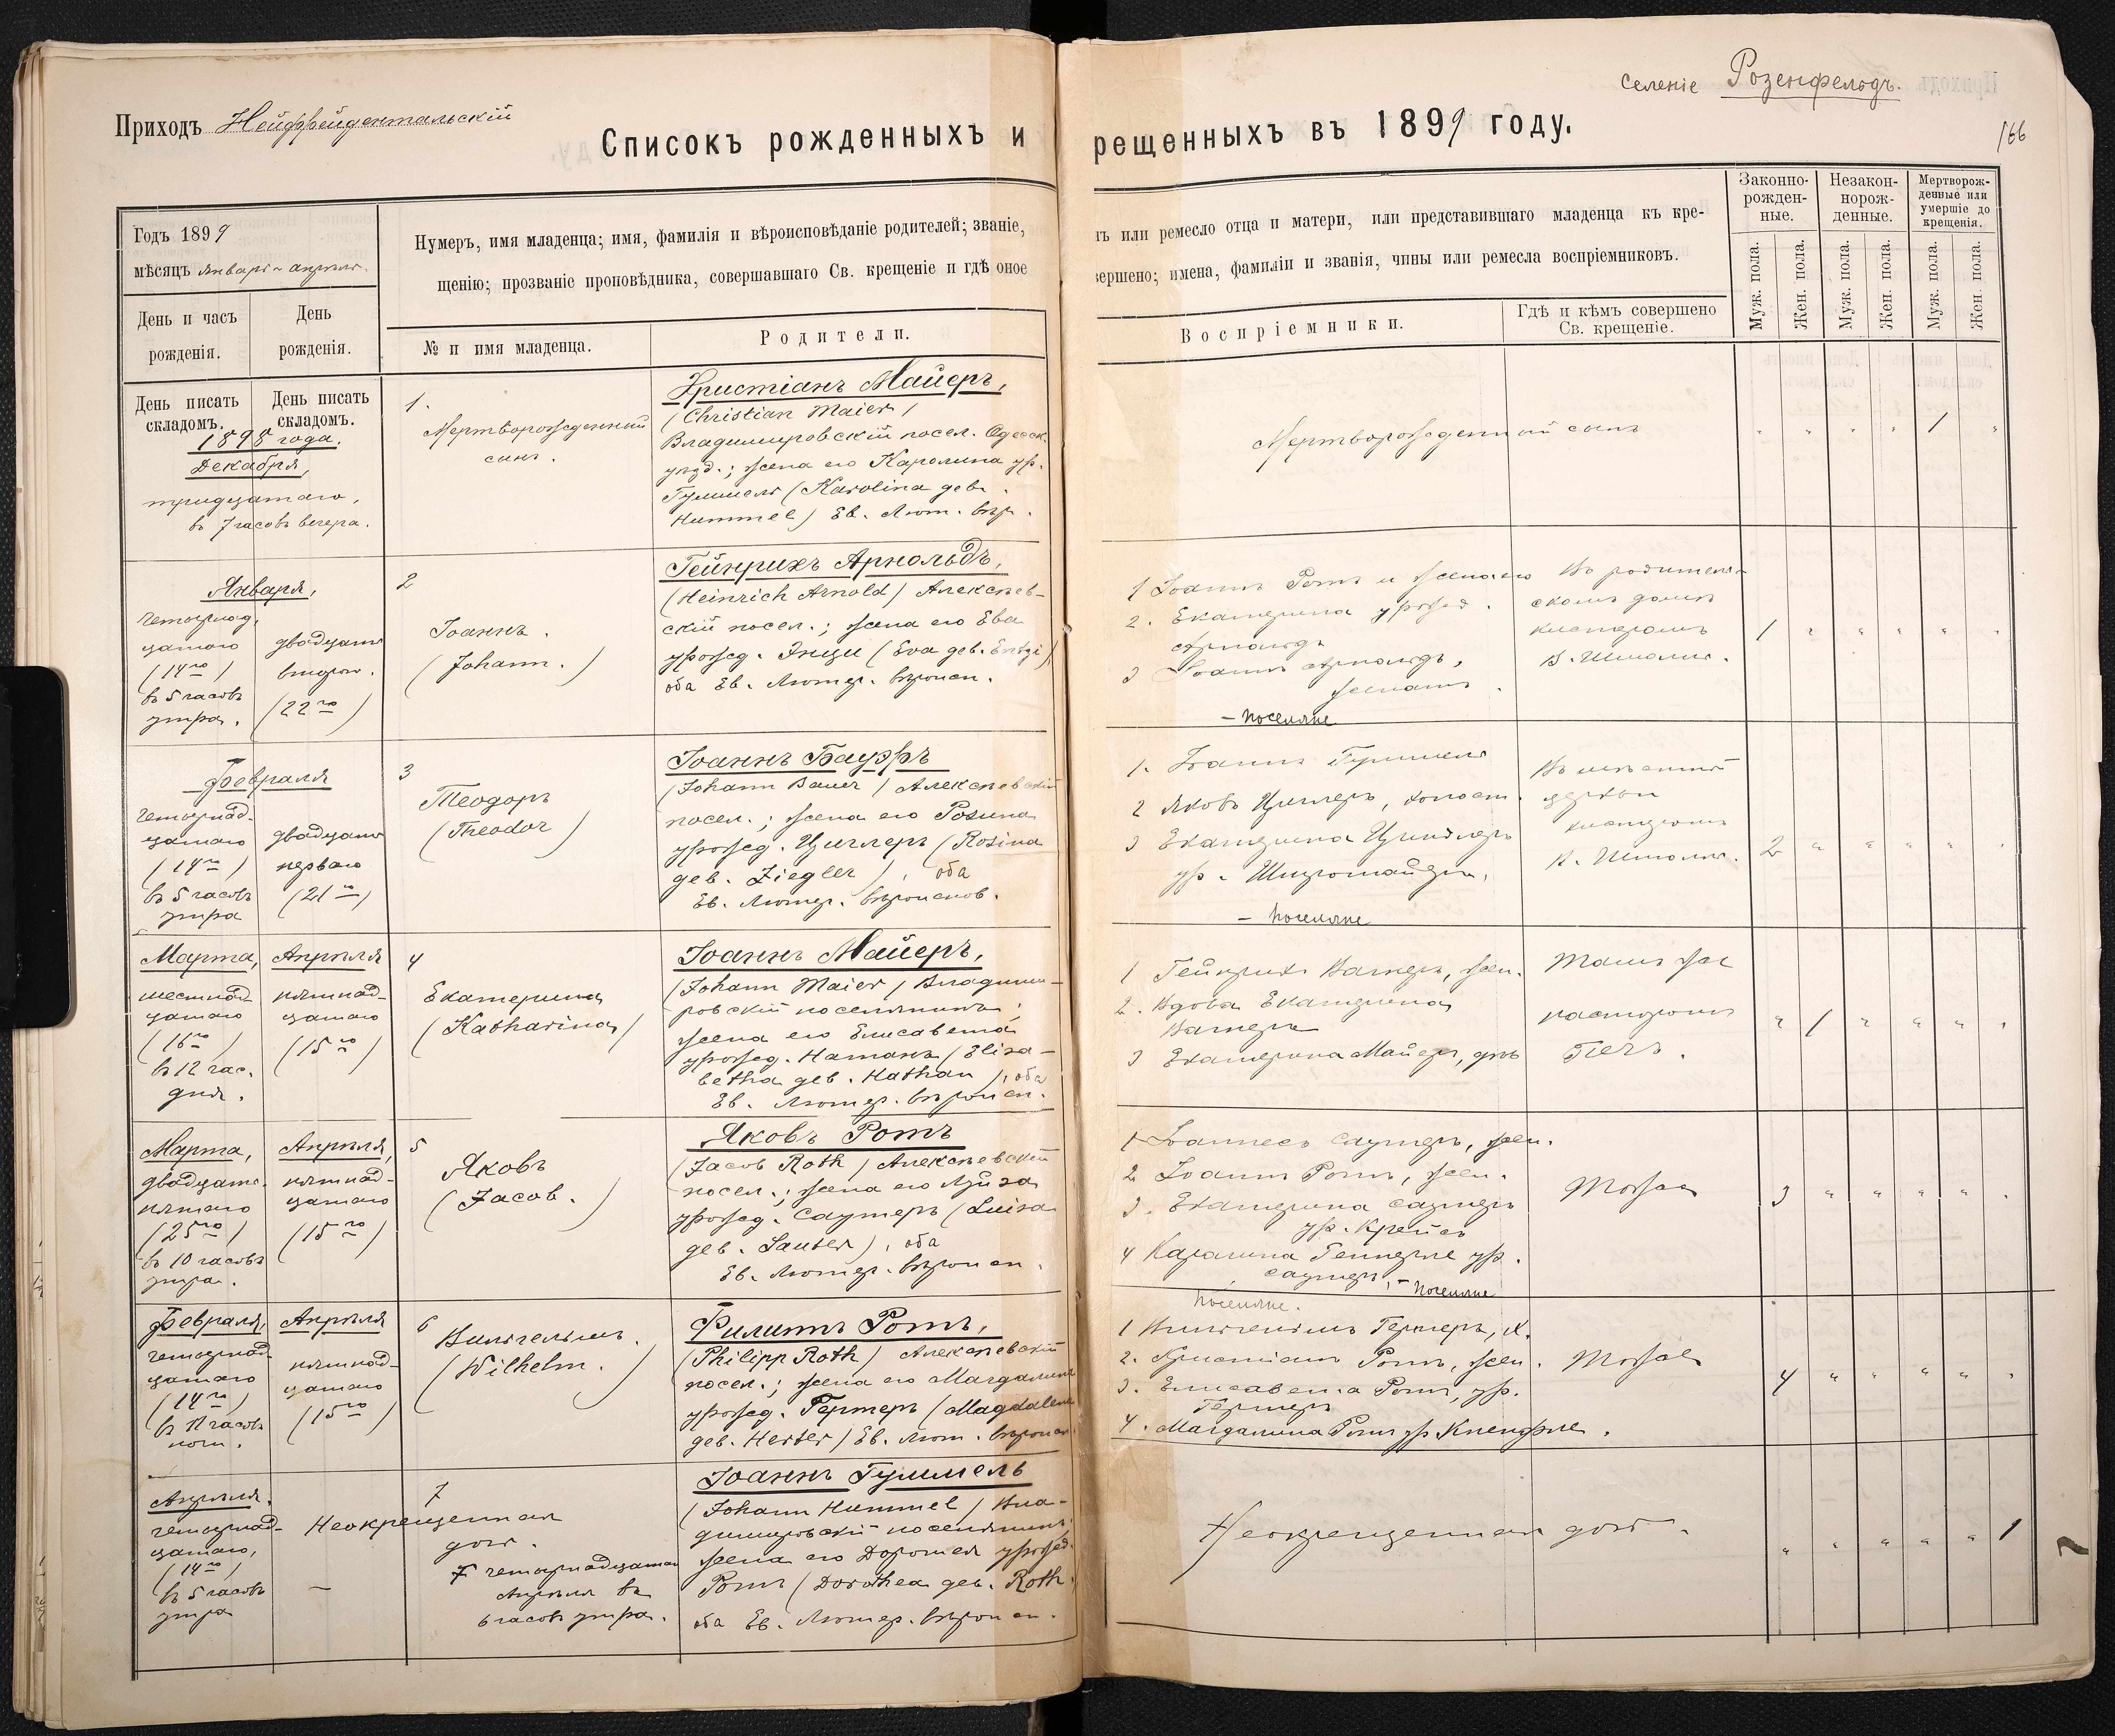 Приходъ Нейффейдентальскій
Списокъ рожденныхъ и
Годъ 1899
мѣсяцъ Январь - апрѣль.
Нумеръ, имя младенца; имя, фамилія и вѣроисповѣданіе родителей; званіе,
щенію; прозваніе проповѣдника, совершавшаго Св. крещеніе и гдѣ оное
День и часъ
рожденія.
День
рожденія.
№ и имя младенца.
Родители.
День писать
складомъ.
День писать
складомъ.
1898 года.
Декабря,
тридцатаго,
въ 7 часовъ вечера.
1.
Мертворожденный
сынъ.
Христіанъ Майеръ,
(Christian Maier)
Владимировскій посел. Одесск.
уѣзд.; жена его Каролина ур.
Гуммель (Karolina geb.
Hummel) Ев. Лют. вѣр.
Января,
четырнад.
цатаго
(14го)
въ 5 часовъ
утра.
двадцать
второго.
(22го)
2
Іоаннъ.
(Johann.)
Гейнрихъ Арнольдъ,
(Heinrich Arnold) Алексѣев-
скій посел.; жена его Ева
урожд. Энци (Eva geb. Entzi)
оба Ев. Лютер. вѣроисп.
Февраля
четырнад-
цатаго
(14го)
въ 5 часовъ
утра
двадцать
перваго
(21го)
3
Теодоръ
(Theodor)
Іоаннъ Бауэръ
(Johann Bauer) Алексѣевскій
посел.; жена его Розина
урожд. Циглеръ (Rosina
geb. Ziegler), оба
Ев. Лютер. вѣроисков.
Марта,
шестнад-
цатаго
(16го)
въ 12 час.
дня.
Апрѣля
пятнад-
цатаго
(15го)
4
Екатерина
(Katharina)
Іоаннъ Майеръ,
(Johann Maier) Владими-
ровскій поселянинъ;
жена его Елисавета
урожд. Натанъ (Elisa-
betha geb. Nathan), оба
Ев. Лютер. вѣроисп.
Марта,
двадцать
пятаго
(25го)
въ 10 часовъ
утра.
Апрѣля,
пятнад-
цатаго
(15го)
5
Яковъ
(Jacob.)
Яковъ Ротъ
(Jacob Roth) Алексѣевскій
посел.; жена его Луиза
урожд. Саутеръ (Luisa
geb. Sauter), оба
Ев. Лютер. вѣроисп.
Февраля,
четырнад-
цатаго
(14го)
въ 11 часовъ
ночи.
Апрѣля
пятнад-
цатаго
(15го)
6
Вильгельмъ.
(Wilhelm.)
Филиппъ Ротъ,
(Philipp Roth) Алексѣевскій
посел.; жена его Магдалина
урожд. Гертеръ (Magdalena
geb. Herter) Ев. Лют. вѣроисп
Апрѣля.
четырнад-
цатаго,
(14го)
въ 5 часовъ
утра
—
7
Некрещенная
дочь.
† четырнадцатаго
Апрѣля въ
6 часовъ утра.
Іоаннъ Гуммель
(Johann Hummel) Вла-
димировскій поселянинъ
жена его Доротея урожд.
Ротъ (Dorothea geb. Roth
оба Ев. Лютер. вѣроисп.
селеніе Розенфельдъ.
166
рещенныхъ въ 1899 году.
ъ или ремесло отца и матери, или представившаго младенца къ кре-
вершено; имена, фамиліи и званія, чины или ремесла воспріемниковъ.
Воспріемники.
Гдѣ и кѣмъ совершено
Св. крещеніе.
Законно-
рожден-
ные.
Незакон-
норож-
денные.
Мертворож-
денные или
умершіе до
крещенія.
Муж. пола.
Жен. пола.
Муж. пола.
Жен. пола.
Муж. пола.
Жен. пола.
Мертворожденный сынъ
" " " " 1 "
1 Іоаннъ Ротъ и жена его
2. Екатерина урожд.
Арнольдъ
3 Іоаннъ Арнольдъ,
женатъ.
- поселяне
Въ родитель-
скомъ домѣ
кистеромъ
1 " " " " "
1. Іоаннъ Гуммель
2 Яковъ Циглеръ, холост.
3 Екатерина
ур.
- поселяне
церкви
кистеромъ
2 " " " " "
1 Гейнрихъ Вагнеръ, жен.
2. Вдова Екатерина
Вагнеръ
3 Екатерина Майеръ, дѣв
Тамъ же
пасторомъ
" 1 " " " "
1 Іоаннесъ Саутеръ, жен.
2 Іоаннъ Ротъ, жен.
3. Екатерина Саутеръ
ур. Крейсъ
4 Каролина ур.
Саутеръ, - поселяне
Тоже
3 " " " " "
поселяне.
1 Вильгельмъ Гертеръ, х.
2. Христіанъ Ротъ, жен.
3. Елисавета Ротъ, ур.
Гертеръ
4. Магдалина Ротъ ур Кнепфле.
Тоже
4 " " " " "
Некрещенная дочь.
" " " " " 1